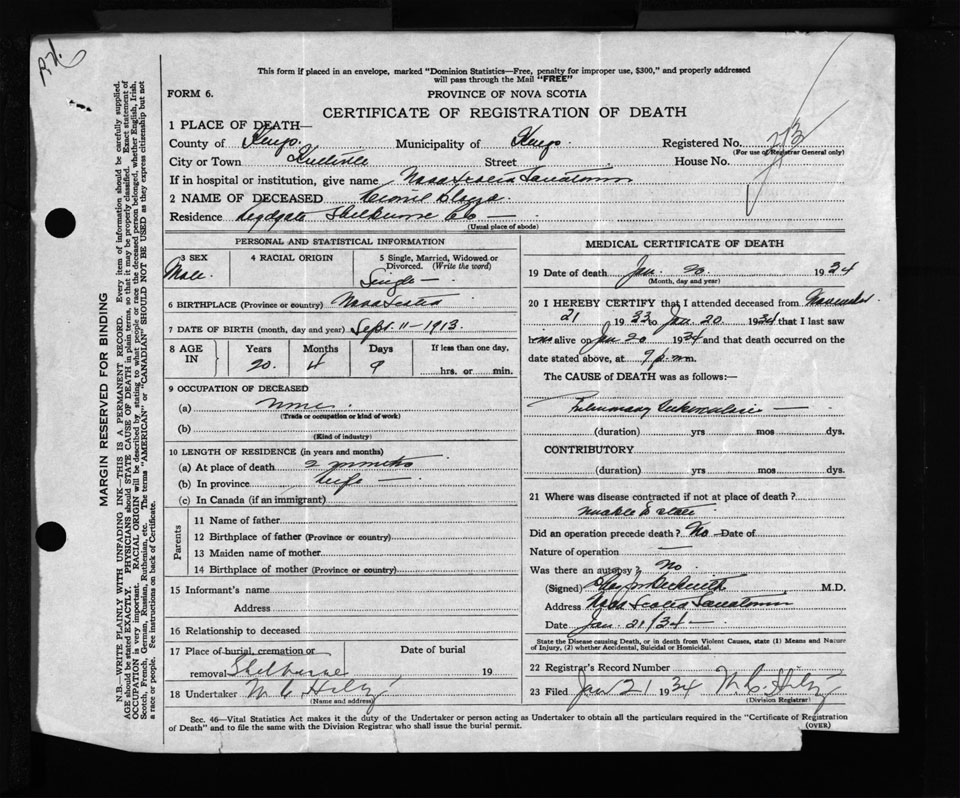 This form if placed in an envelope, marked "Dominion Statistics—Free, penalty for improper use, $300," and properly addressed
will pass through the Mail "FREE"
FORM 6.
PROVINCE OF NOVA SCOTIA
CERTIFICATE OF REGISTRATION OF DEATH
1 PLACE OF DEATH—
County of Kings. Municipality of Kings. Registered No.
(For use of Registrar General only)
City or Town Kentville Street House No.
If in hospital or institution, give name Nova Scotia Sanatorium
2 NAME OF DECEASED
Residence Shelburne Co —
(Usual place of abode)
PERSONAL AND STATISTICAL INFORMATION
3 SEX
Male.
4 RACIAL ORIGIN
5 Single, Married, Widowed or
Divorced. (Write the word)
Single —
6 BIRTHPLACE (Province or country) Nova Scotia
7 DATE OF BIRTH (month, day and year) Sept. 11 - 1913.
8 AGE
IN
Years
Months
Days
If less than one day,
20. 4 9 hrs. or min.
9 OCCUPATION OF DECEASED
(a) none.
(Trade or occupation or kind of work)
(b)
(Kind of industry)
10 LENGTH OF RESIDENCE (in years and months)
(a) At place of death 2 months
(b) In province Life —
(c) In Canada (if an immigrant)
Parents
11 Name of father
12 Birthplace of father (Province or country)
13 Maiden name of mother
14 Birthplace of mother (Province or country)
15 Informant's name
Address
16 Relationship to deceased
17 Place of burial, cremation or
removal Shelburne
Date of burial
19
18 Undertaker W. C. Hiltz
(Name and address)
MEDICAL CERTIFICATE OF DEATH
19 Date of death Jan. 20 1934
(Month, day and year)
20 I HEREBY CERTIFY that I attended deceased from November
21 1933 to Jan. 20 1934 that I last saw
him alive on Jan 20 1934 and that death occurred on the
date stated above, at 9 p.m.
The CAUSE of DEATH was as follows:—
Pulmonary Tuberculosis —
(duration) yrs mos dys.
CONTRIBUTORY
(duration) yrs mos dys.
21 Where was disease contracted if not at place of death?
Unable to state
Did an operation precede death? No — Date of
Nature of operation —
Was there an autopsy? No
(Signed) Beckwith M.D.
Address Nova Scotia Sanatorium
Date Jan. 21/34 —
State the Disease causing Death, or in death from Violent Causes, state (1) Means and Nature
of Injury, (2) whether Accidental, Suicidal or Homicidal.
22 Registrar's Record Number
23 Filed Jan 21 1934 W. C. Hiltz
(Division Registrar)
Sec. 46—Vital Statistics Act makes it the duty of the Undertaker or person acting as Undertaker to obtain all the particulars required in the "Certificate of Registration
of Death" and to file the same with the Division Registrar who shall issue the burial permit.
(OVER)
MARGIN RESERVED FOR BINDING
N.B.—WRITE PLAINLY WITH UNFADING INK—THIS IS A PERMANENT RECORD. Every item of information should be carefully supplied.
AGE should be stated EXACTLY. PHYSICIANS should STATE CAUSE OF DEATH in plain terms, so that it may be properly classified. Exact statement of
OCCUPATION is very important. RACIAL ORIGIN will be described by stating to what people or race the deceased person belonged, whether English, Irish,
Scotch, French, German, Russian, Ruthenian, etc. The terms "AMERICAN" or "CANADIAN" SHOULD NOT BE USED as they express citizenship but not
a race or people. See instructions on back of Certificate.